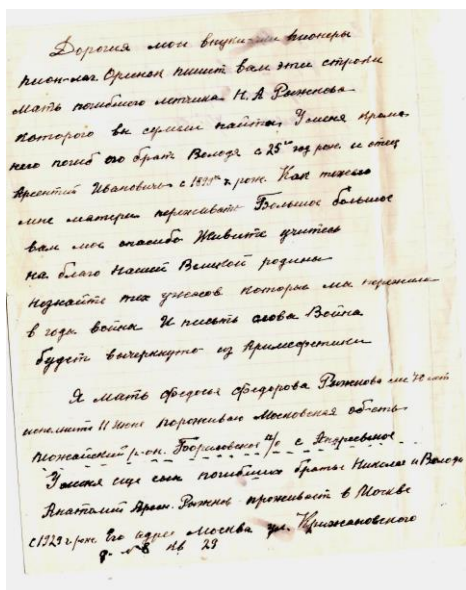 Дорогия мои внуки-ми пионеры
пион-лаг Орленок пишит вам эти строки
мать погибшего летчика Н.А Рыжкова
которого вы сумели найти, Уменя кроме
него погиб его брать Володя с 25го год рож. и отец
Арсентий Ивановичь с 1899го г. рож. Как тяжело
мне матери переживать Большое большое
вам мое спасибо Живите учитесь
на благо нашей Великой родины
незнайте тех ужасов которые мы пережила
в годы войны И пусть слова Война
будет вычеркнуто из
Я мать Федосья Федорова Рыжкова мне 70 лет
исполнит 11 июня пороживаю Московская область
можайский р-он. п/о с Андреевское
Уменя еще сын погибших братье Николая и Володи
Анатолий Арсен. Рыжков проживает в Москве
с 1929 г. рож. Его адрес Москва ул. Кржижановского
д. №8 кв 29